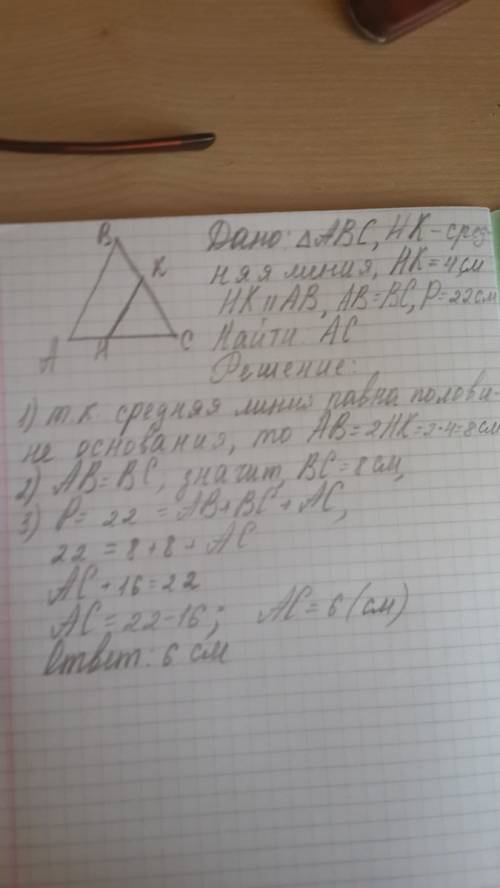 B
K
A
H
C
Дано: △ABC, HK-сред-
няя линия, HK=4см
HK॥AB, AB=BC, P=22см
Найти: AC
Решение:
1) т.к. средняя линия равна полови-
не основания, то AB=2HK=2·4=8см
2) AB=BC, значит, BC=8см,
3) P= 22 =AB+BC+AC,
22 = 8+8+AC
AC+16=22
AC=22-16; AC=6(см)
Ответ: 6 см